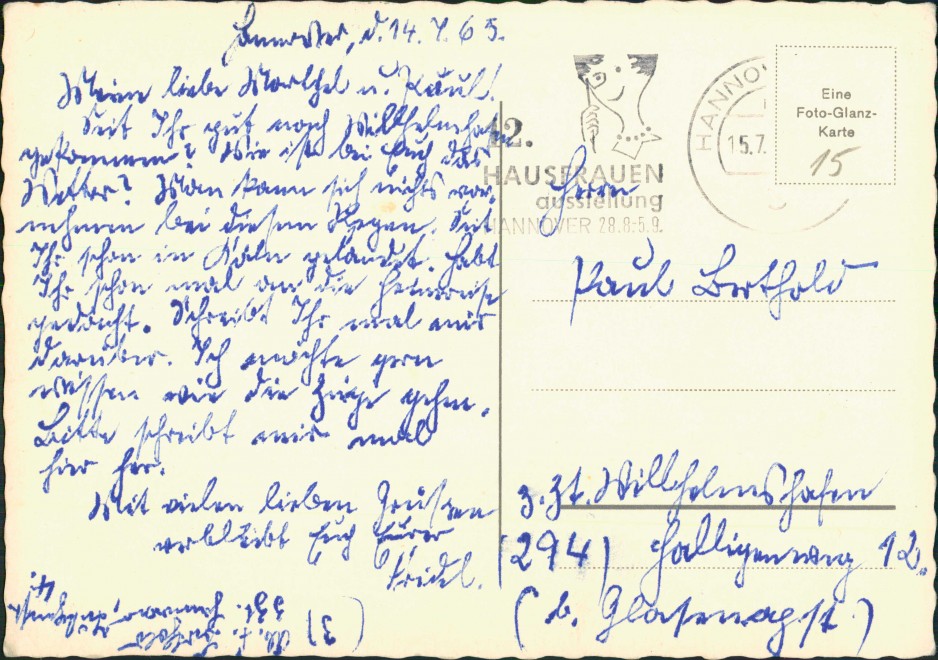 Hannover, d. 14.7.65.
Meine liebe Marthel u. Paul!
Seit Ihr gut nach Willhelmshafen
gekommen? Wie ist bei Euch das
Wetter? Man kann sich nichts vor-
nehmen bei diesem Regen. Seit
Ihr schon in Köln gelandet. Habt
Ihr schon mal an die Heimreise
gedacht. Schreibt Ihr mal mir
darüber. Ich möchte gern
wissen wie die Züge gehen.
Bitte schreibt mir mal
hier her.
Mit vielen lieben Grüssen
verbleibt Euch Eurer
Friedel.
z.Zt. Hannover
(3)
12.
HAUSFRAUEN
ausstellung
HANNOVER 28.8.-5.9.
HANNO
15.7.
Eine
Foto-Glanz-
Karte
15
Herrn
Paul Berthold
z. Zt. Willhelmshafen
(294) Halligenweg 12.
(b. Glasenapst.)